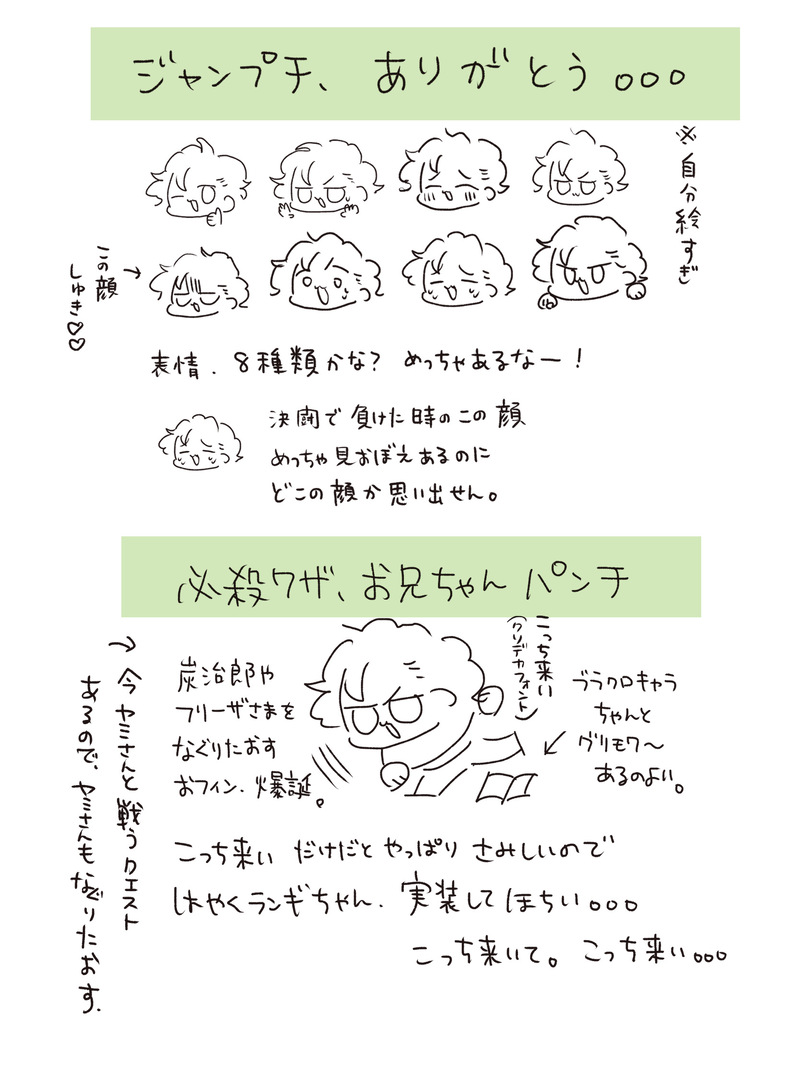 ジャンプチ、ありがとう。。。
※自分絵すぎ
この顔
しゅき♡♡
表情、8種類かな？ めっちゃあるなー！
決闘で負けた時のこの顔
めっちゃ見おぼえあるのに
どこの顔か思い出せん。
必殺ワザ、お兄ちゃんパンチ
こっち来い
(クソデカフォント)
炭治郎や
フリーザさまを
なぐりたおす
おフィン、爆誕。
ブラクロキャラ
ちゃんと
グリモワ〜
あるのよい。
→今ヤミさんと戦うクエスト
あるので、ヤミさんもなぐりたおす.
こっち来い だけだと やっぱり さみしいので
はやくランギちゃん、実装してほちい。。。
こっち来いて。こっち来い。。。